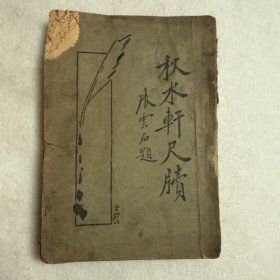 秋水軒尺牘
張雲石題